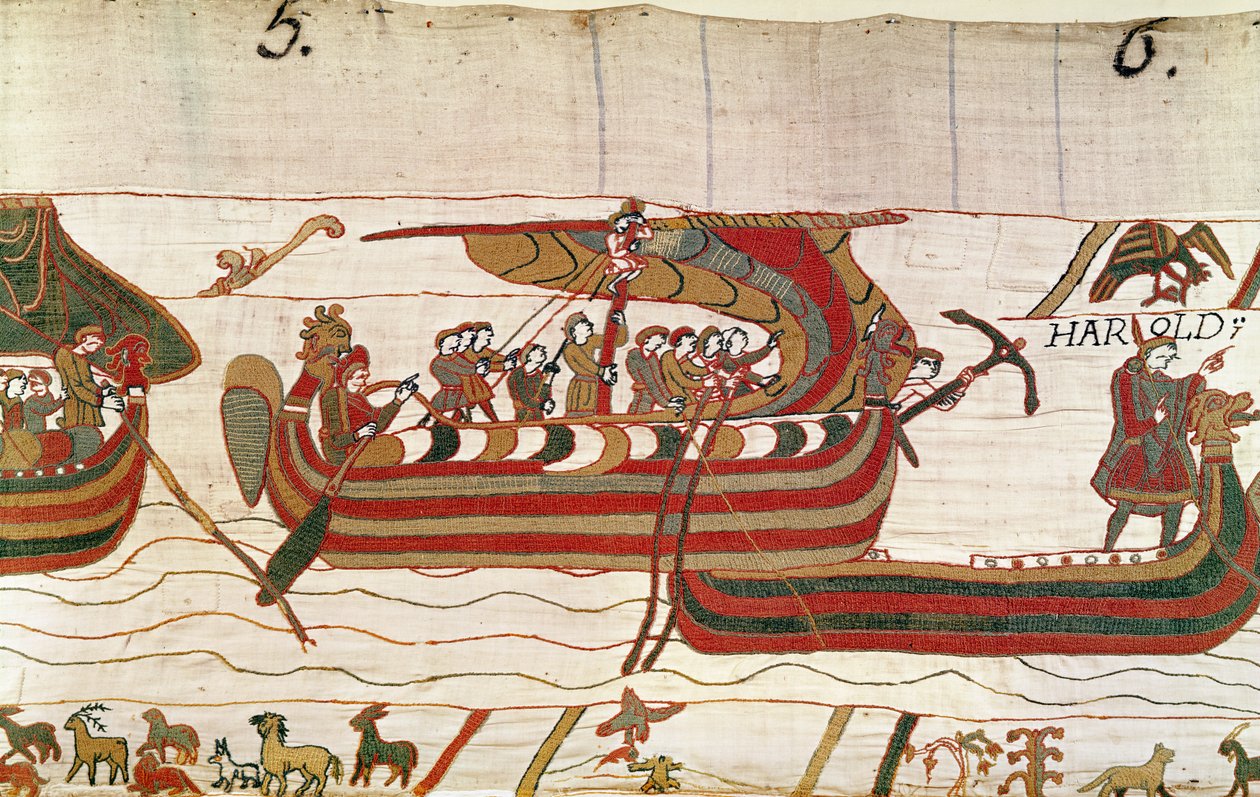 5. 6.
HAROLD: